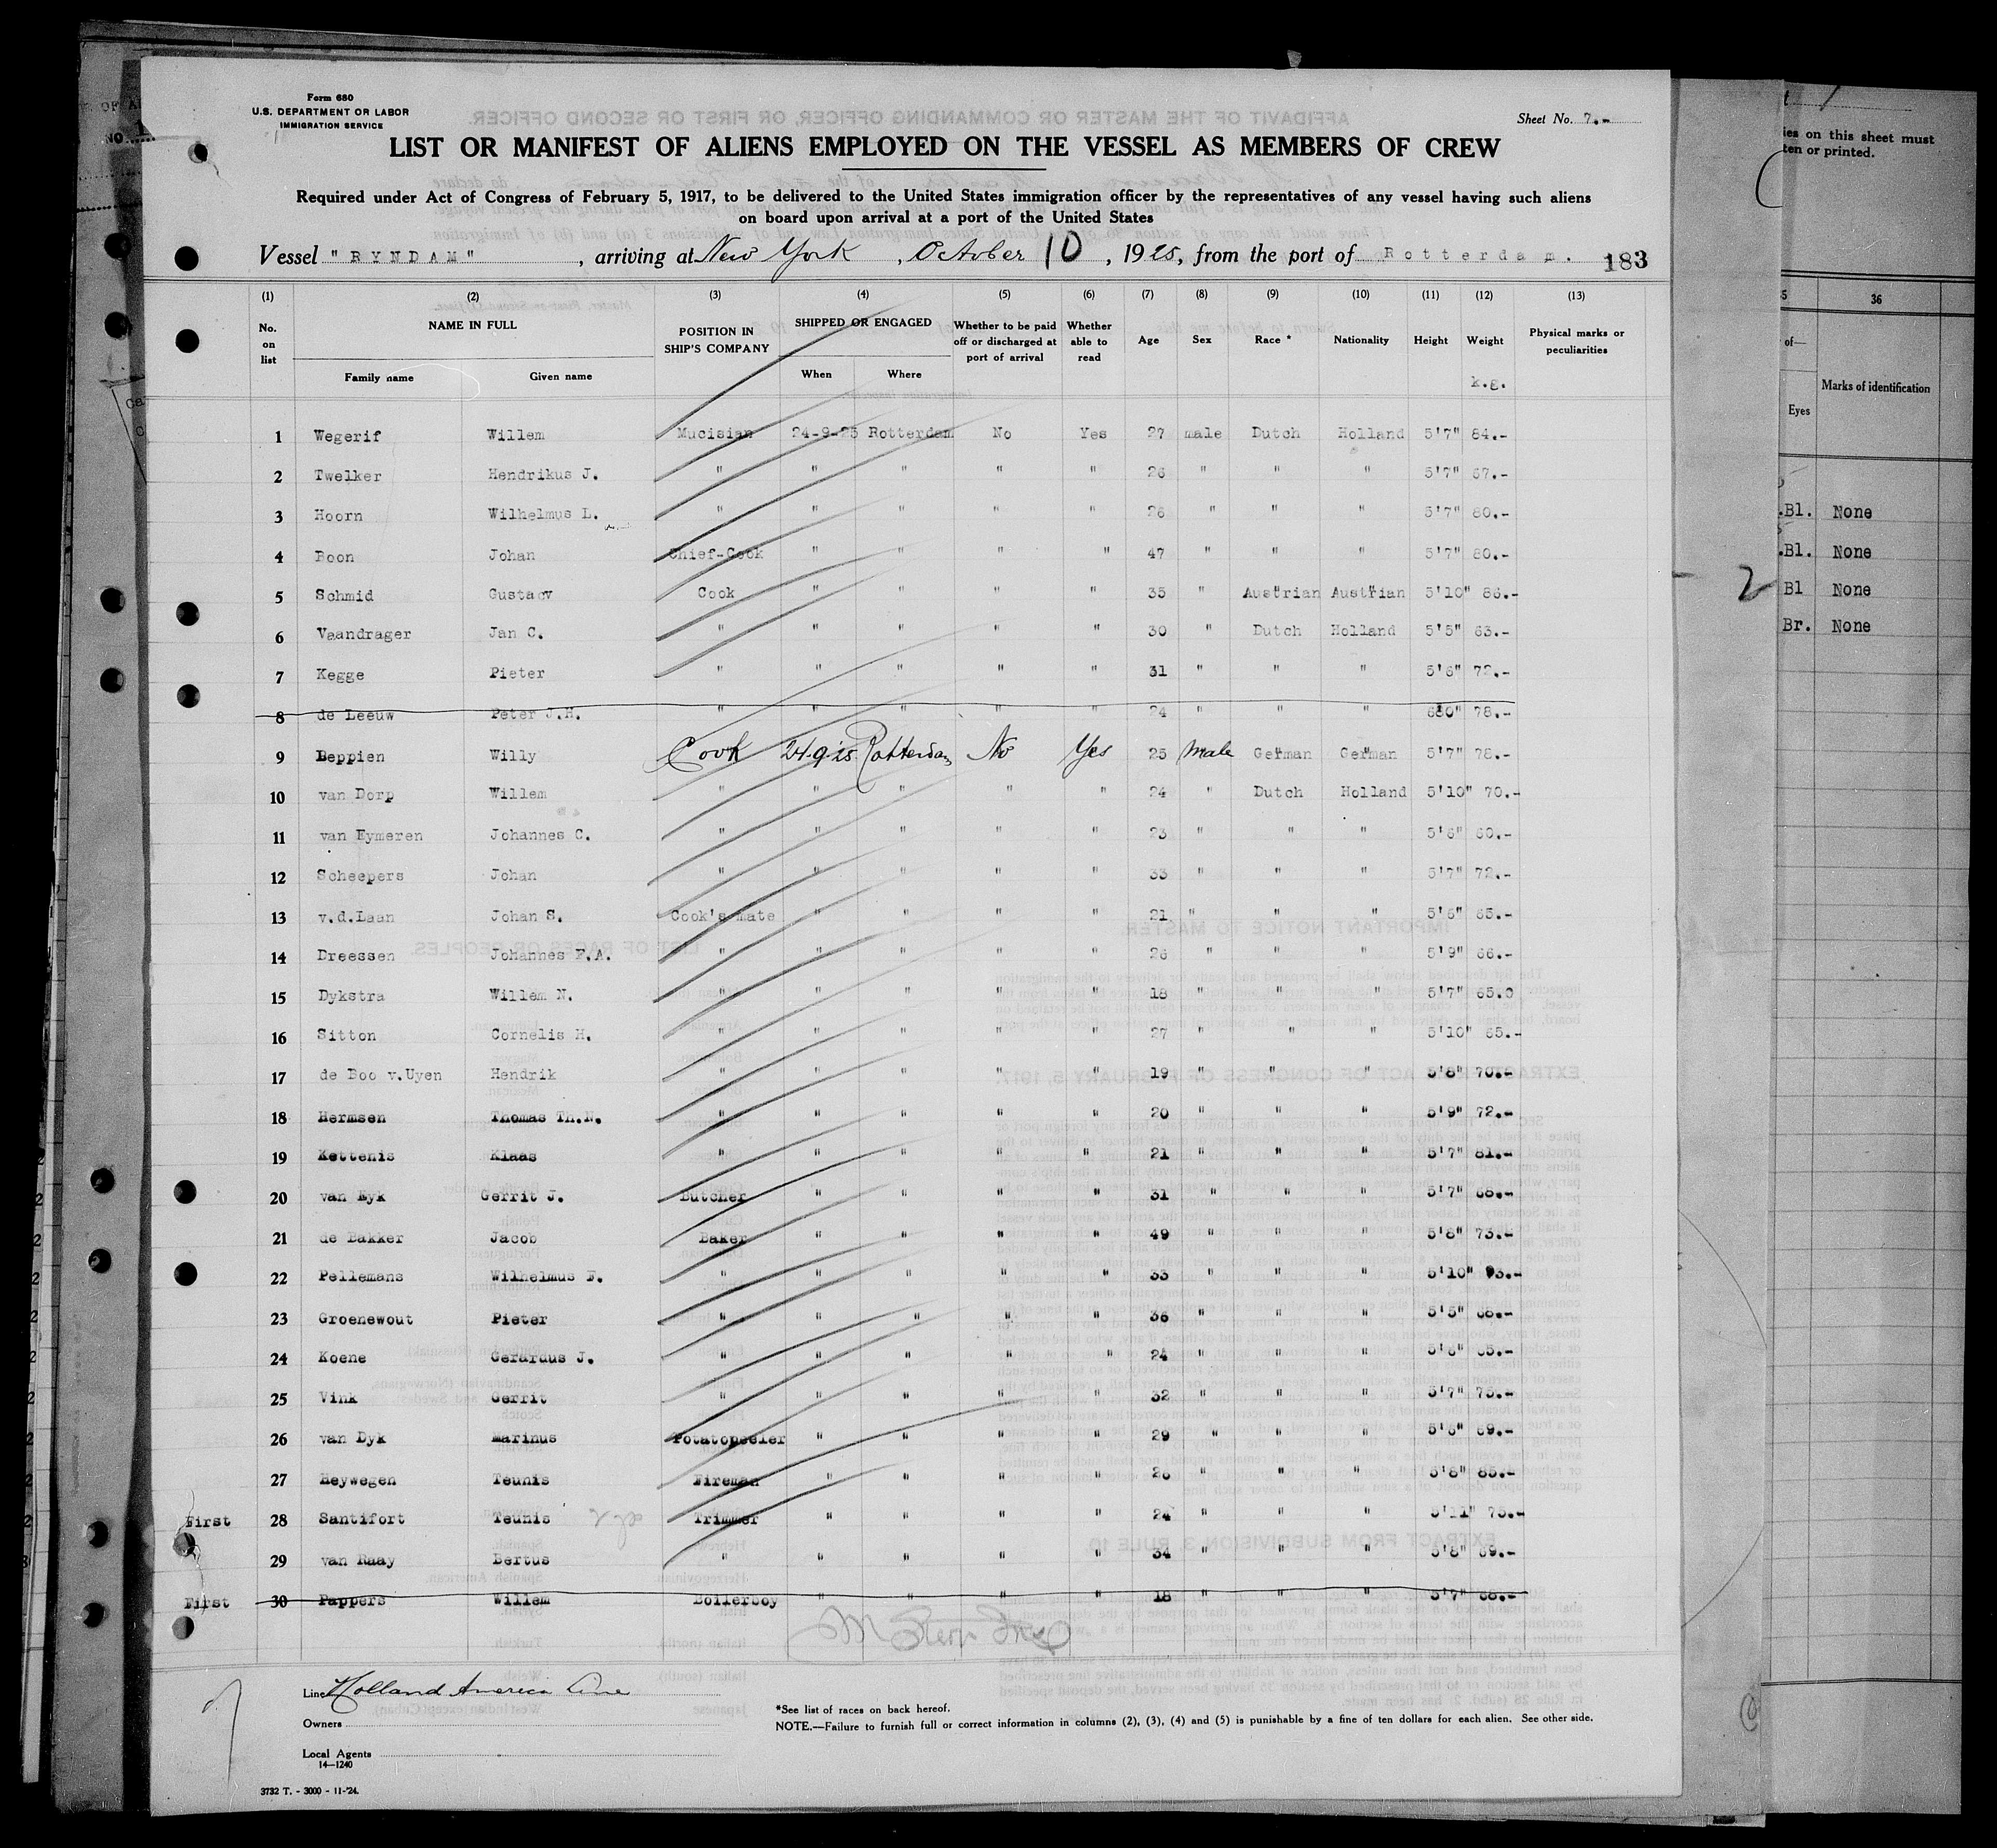 Form 680
U.S. DEPARTMENT OR LABOR
IMMIGRATION SERVICE
Sheet No. 7.-
LIST OR MANIFEST OF ALIENS EMPLOYED ON THE VESSEL AS MEMBERS OF CREW
Required under Act of Congress of February 5, 1917, to be delivered to the United States immigration officer by the representatives of any vessel having such aliens
on board upon arrival at a port of the United States
Vessel "RYNDAM", arriving at New York, October 10, 1925, from the port of Rotterdam. 183
(1) (2) (3) (4) (5) (6) (7) (8) (9) (10) (11) (12) (13)
No. on list NAME IN FULL Family name Given name POSITION IN SHIP'S COMPANY SHIPPED OR ENGAGED When Where Whether to be paid off or discharged at port of arrival Whether able to read Age Sex Race * Nationality Height Weight k.g. Physical marks or peculiarities
1 Wegerif Willem Mucisian 24-9-25 Rotterdam No Yes 27 male Dutch Holland 5'7" 84.-
2 Twelker Hendrikus J. " " " " " 26 " " " 5'7" 67.-
3 Hoorn Wilhelmus L. " " " " " 26 " " " 5'7" 80.-
4 Boon Johan Chief-Cook " " " " 47 " " " 5'7" 80.-
5 Schmid Gustaov Cook " " " " 35 " Austrian Austrian 5'10" 86.-
6 Vaandrager Jan C. " " " " " 30 " Dutch Holland 5'5" 63.-
7 Kegge Pieter " " " " " 31 " " " 5'6" 72.-
8 de Leeuw Peter J.H. " " " " " 24 " " " 78.-
9 Beppien Willy Cook 24.9.'25 Rotterdam No Yes 25 Male German German 5'7" 78.-
10 van Dorp Willem " " " " " 24 " Dutch Holland 5'10" 70.-
11 van Eymeren Johannes C. " " " " " 23 " " " 5'6" 60.-
12 Scheepers Johan " " " " " 33 " " " 5'7" 72.-
13 v.d.Laan Johan S. Cook's mate " " " " 21 " " " 5'6" 65.-
14 Dreessen Johannes F.A. " " " " " 26 " " " 5'9" 66.-
15 Dykstra Willem N. " " " " " 18 " " " 5'7" 65.0
16 Sitton Cornelis H. " " " " " 27 " " " 5'10" 65.-
17 de Boo v.Uyen Hendrik " " " " " 19 " " " 5'8" 70.-
18 Hermsen Thomas Th.N. " " " " " 20 " " " 5'9" 72.-
19 Kettenis Klaas " " " " " 21 " " " 5'7" 81.-
20 van Eyk Gerrit J. Butcher " " " " 31 " " " 5'7" 68.-
21 de Bakker Jacob Baker " " " " 49 " " " 5'8" 73.-
22 Pellemans Wilhelmus F. " " " " " 33 " " " 5'10" 93.-
23 Groenewout Pieter " " " " " 36 " " " 5'5" 68.-
24 Koene Gerardus J. " " " " " 24 " " " 5'6" 65.-
25 Vink Gerrit " " " " " 32 " " " 5'7" 75.-
26 van Dyk Marinus Potatopeeler " " " " 29 " " " 5'6" 69.-
27 Heywegen Teunis Fireman " " " " 26 " " " 5'8" 85.-
First 28 Santifort Teunis Trimmer " " " " 24 " " " 5'11" 75.-
29 van Raay Bertus " " " " " 34 " " " 5'8" 69.-
First 30 Pappers Willem Boilerboy " " " " 18 " " " 5'7" 68.-
Line Holland America Line
Owners
Local Agents
14—1240
*See list of races on back hereof.
NOTE.—Failure to furnish full or correct information in columns (2), (3), (4) and (5) is punishable by a fine of ten dollars for each alien. See other side.
3732 T. - 3000 - 11-'24.
ies on this sheet must
ten or printed.
36
of—
Eyes
Marks of identification
Bl. None
Bl. None
2 Bl None
Br. None